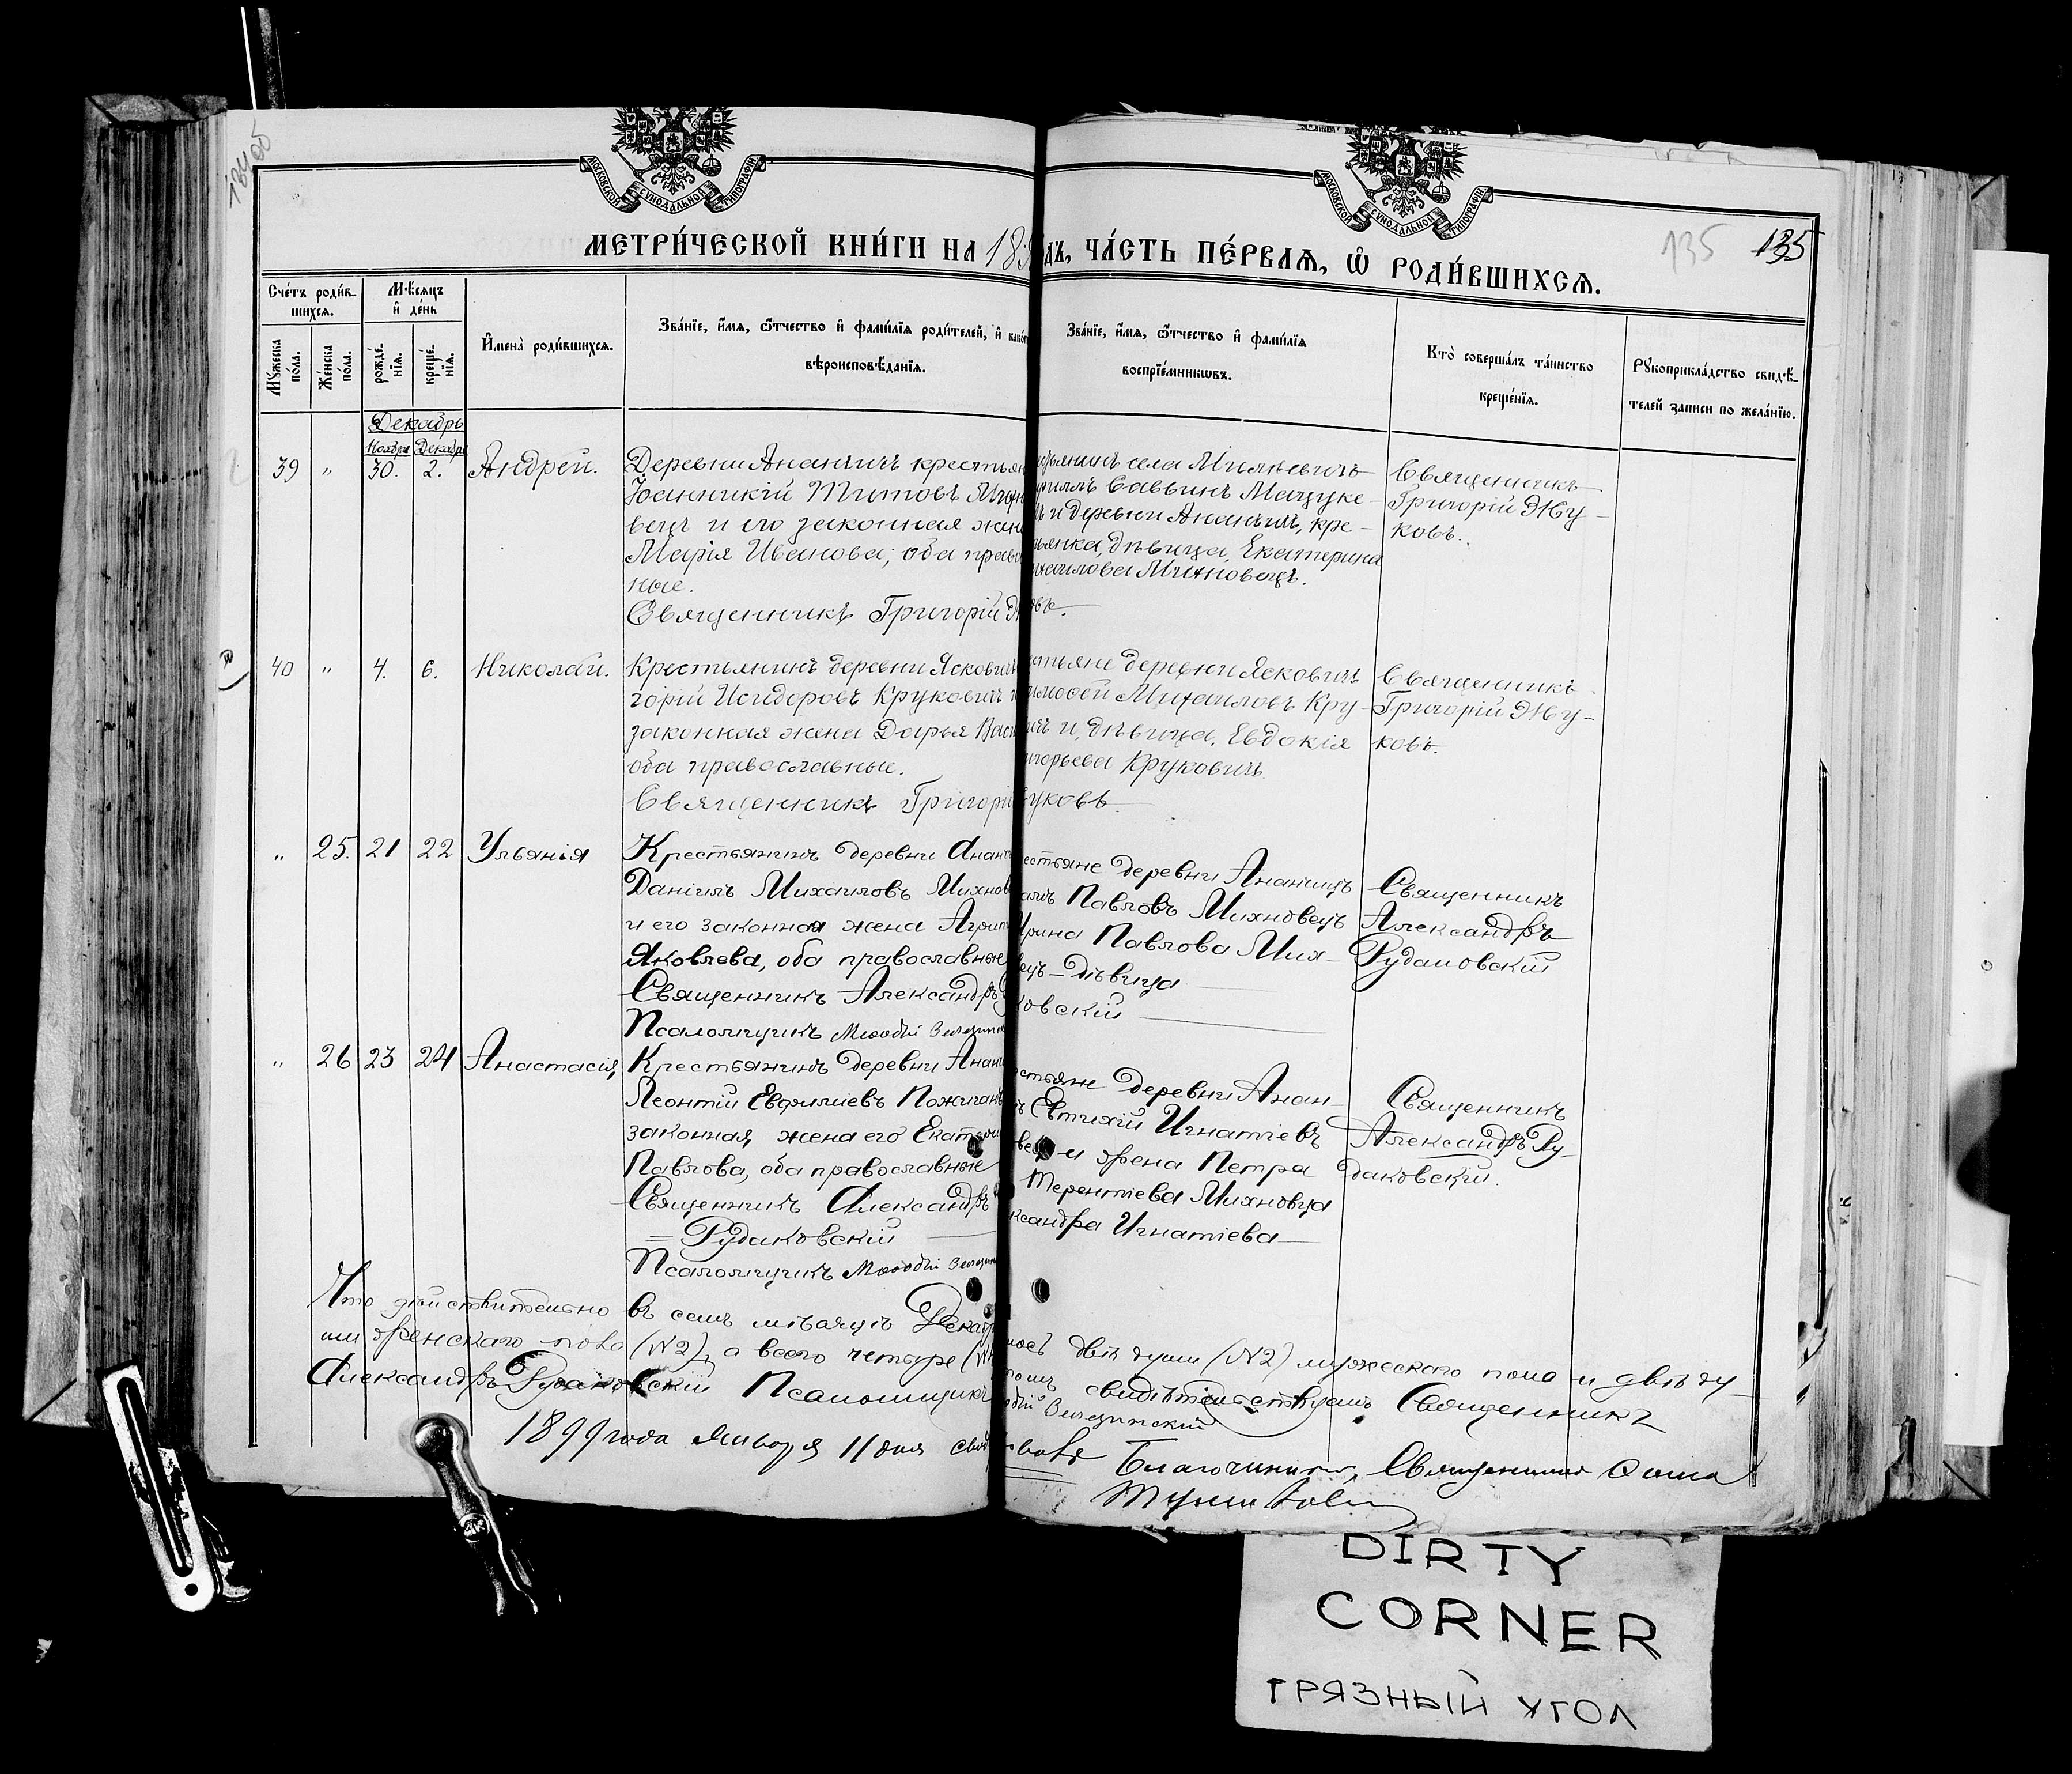 18405
МОСКОВСКОЙ СѴНОДАЛЬНОЙ ТИПОГРАФІИ
МОСКОВСКОЙ СѴНОДАЛЬНОЙ ТИПОГРАФІИ
МЕТРИ́ЧЕСКОЙ КНИ́ГИ НА 189
дъ, ЧА́СТЬ ПЕ́РВАѦ, Ѡ҆ РОДИ́ВШИХСѦ.
135 135
Сче́тъ роди́в-
шихсѧ.
Мꙋ́жеска по́ла.
Же́нска по́ла.
Мѣ́сѧцъ и҆ де́нь
рожде́-нїѧ.
креще́-нїѧ.
И҆мена̀ роди́вшихсѧ.
Зва́нїе, и҆́мѧ, ѻ҆́тчество и҆ фами́лїѧ роди́телей, и҆ како́
вѣроисповѣ́данїѧ.
Зва́нїе, и҆́мѧ, ѻ҆́тчество и҆ фами́лїѧ
воспрїе́мникѡвъ.
Кто̀ соверша́лъ та́инство
креще́нїѧ.
Рꙋкоприкла́дство свидѣ́-
телей записи по жела́нїю.
Декабрь
Ноябрь Декабрь
39 " 30. 2. Андрей.
Деревни Ананчичъ крестьян
Іоанникій Титовъ Михно
вецъ и его законная жена
Марія Иванова; оба право
ные.
Священникъ Григорій Ж
стьянинъ села Милевичъ
риллъ Саввинъ Мацуке-
ъ и деревни Ананчичъ, кре-
тьянка, дѣвица, Екатерина
хаилова Михновецъ.
овъ.
Священникъ
Григорій Жу-
ковъ.
40 " 4. 6. Николай.
Крестьянинъ деревни Ясковичъ
горій Исидоровъ Круковичъ и
законная жена Дарья Васи
оба православные.
Священникъ Григорій
стьяне деревни Ясковичъ
имофей Михаиловъ Кру-
ичъ и, дѣвица, Евдокія
игорьева Круковичъ
уковъ.
Священникъ
Григорій Жу-
ковъ.
" 25. 21 22 Ульянія
Крестьянинъ деревни Ананч
Даніилъ Михаиловъ Михнов
и его законная жена Агрип
Яковлева, оба православные
Священникъ Александръ
Псаломщикъ
естьяне деревни Ананчицъ
Павловъ Михновецъ
рина Павлова Мих-
ецъ - дѣвица
ковскій
Священникъ
Александръ
Рудаковскій
" 26 23 24 Анастасія
Крестьянинъ деревни Ананч
Леонтій Евфиміевъ Пожиган
законная жена его Екатери
Павлова, оба православные
Священникъ Александръ
Рудаковскій
Псаломщикъ
стьяне деревни Анан-
ъ Евтихій Игнатіевъ
вецъ и жена Петра
Терентіева Михновца
ксандра Игнатіева
Священникъ
Александръ Ру-
даковскій.
Что дѣйствительно въ семъ мѣсяцѣ Декабр
лось двѣ души (№2) мужескаго пола и двѣ ду-
ши женскаго пола (№2), а всего четыре (№4
томъ свидѣтельствуемъ Священникъ
Александръ Рудаковскій Псаломщикъ
1899 года Января 11 дня свид
Благочинный, Священникъ Ѳома
DIRTY
CORNER
ГРЯЗНЫЙ УГОЛ